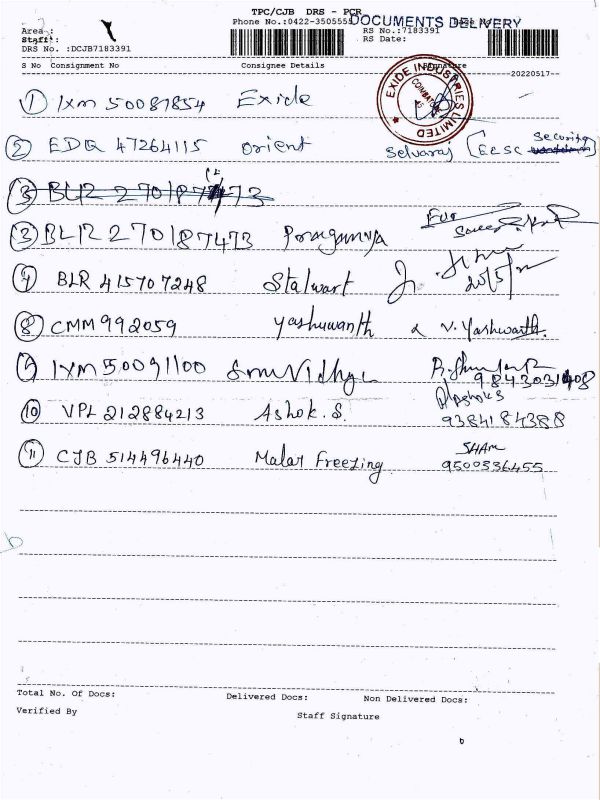 TPC/CJB DRS - PCR
Phone No.:0422-3505555 DOCUMENTS DELIVERY
Area :
RS No.:7183391
Staff:
RS Date:
DRS No. :DCJB7183391
S No Consignment No Consignee Details Signature
20220517
EXIDE INDUSTRIES LIMITED
1 IXM 50081854 Exide
2 EDQ 47264115 Orient Selvaraj ECSC Security
3 BLR 270187473
3 BLR 270187473 For
7 BLR 415707248 Stalwart 20/5/22
8 CMM 992059 Yashuwanth V. Yashwanth
9 IXM 50091100 9843031408
10 VPL 212884213 Ashok.S. Ashok S
9384184388
11 CJB 514496440 Malar Freezing SHAM
9500336455
Total No. Of Docs: Delivered Docs: Non Delivered Docs:
Verified By Staff Signature